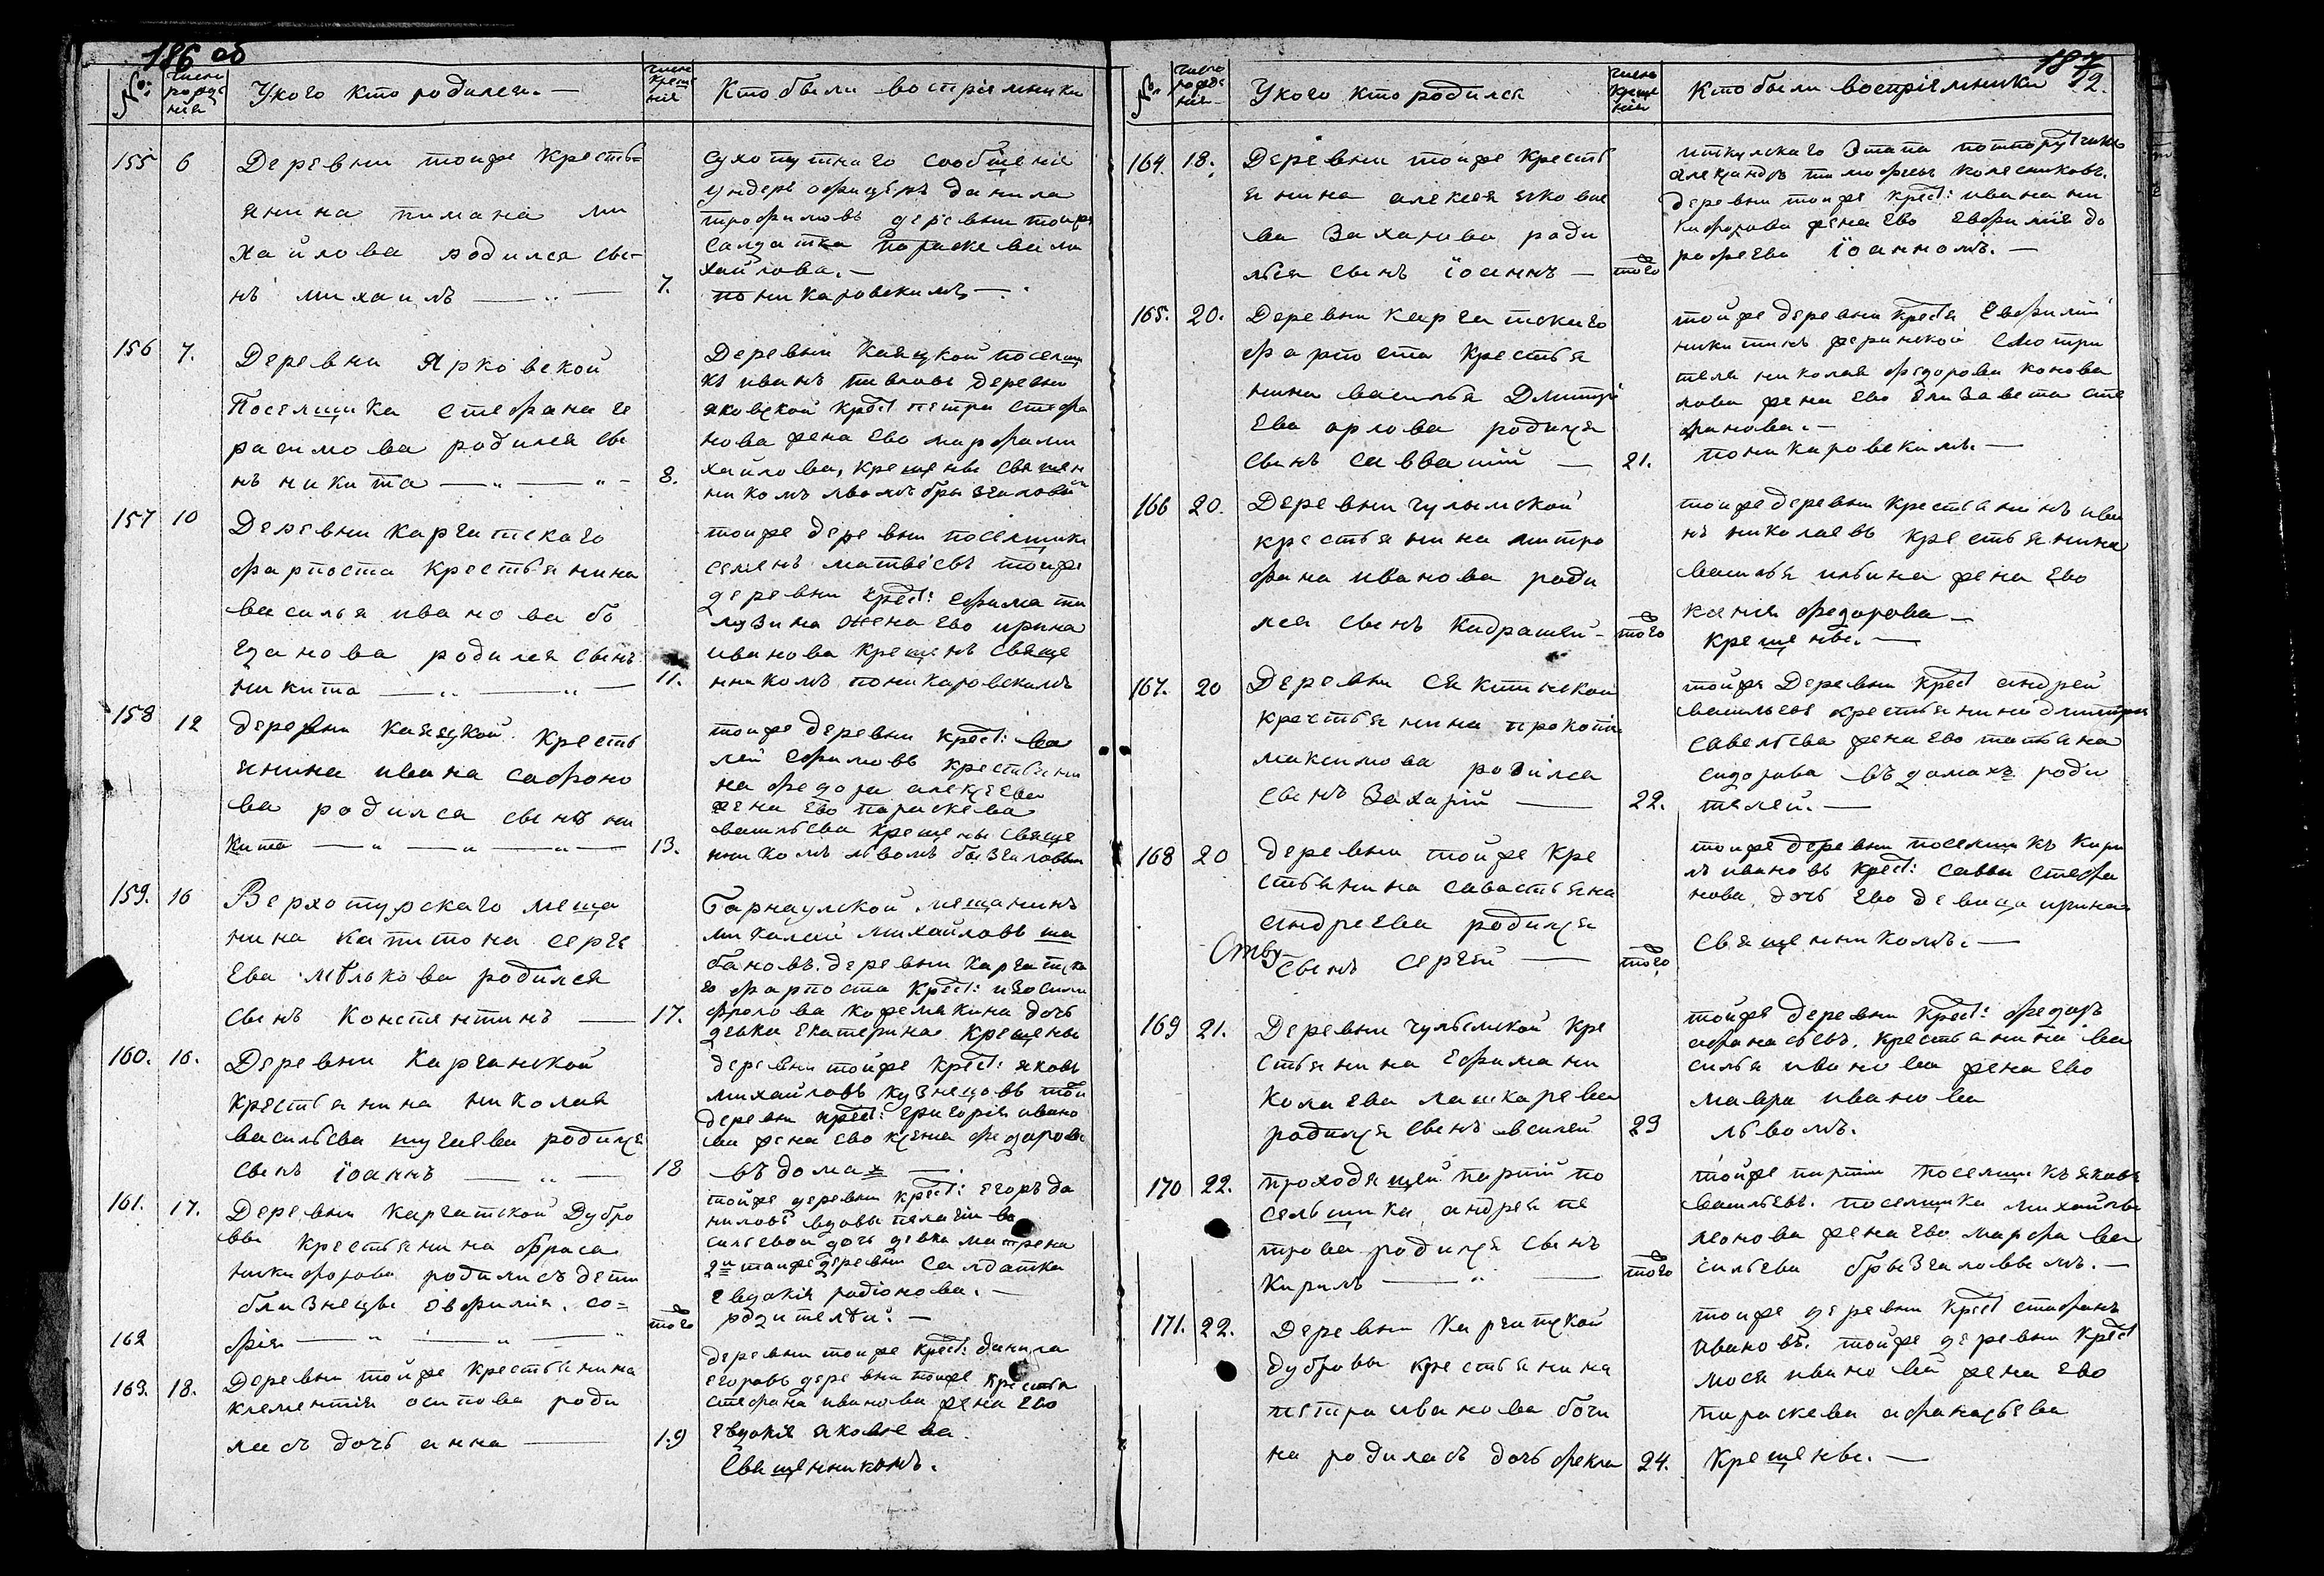 186 об
№: числ рожде нія У кого кто родился. — числ креще нія Кто были воспріемники
155 6 Деревни тойже кресть=
янина пимана ми
хайлова родился сы=
нъ михаилъ — „ —
7.
сухопутнаго сообщенія
ундеръ офицеръ данила
трофимовъ деревни тойже
салдатка параскева ми
хайлова. —
поникаровскимъ —
156 7. Деревни Ярковской
Поселщика стефана ге
расимова родился сы
нъ никита — „ — „ —
8.
Деревни Каяцкой поселщ
къ иванъ павловъ деревни
яковской крест петра стефа
нова жена ево марфа ми
хайлова, крещены священ
никомъ львомъ брызгаловым
157 10 Деревни каргатскаго
фарпоста крестьянина
василья иванова бо
гданова родился сынъ
никита — „ — „ —
11.
тойже деревни поселщикъ
семенъ матвеевъ тойже
деревни крест: ефима ти
лузина жена ево ирина
иванова крещенъ свяще
нникомъ поникаровскимъ
158 12 деревни Каяцкой кресть
янина ивана сафоно
ва родился сынъ ни
кита — „ — „ — „ —
13.
тойже деревни крест: ва
лей ефимовъ крестьяни
на федора алексеева
жена ево параскева
васильева крещены свяще
нникомъ львомъ брызгаловым
159. 16 Верхотурскаго меща
нина капитона серге
ева мелькова родился
сынъ константинъ —
17.
Барнаулской мещанинъ
николай михайловъ ша
бановъ. деревни каргатска
го фарпоста крест: изосима
фролова кожемякина дочь
девка екатерина крещены
160. 16. Деревни Карганской
крестьянина николая
васильева шугаева родился
сынъ іоаннъ — „ —
18
деревни тойже крест: яковъ
михайловъ кузнецовъ той
деревни крест: григорія ивано
ва жена ево ксенія федорова
въ домах —
161. 17. Деревни каргатской Дубро
вы крестьянина фраса
никифорова родились дети
близнецы евфимія, со=
162 фія — „ — „ —
того
тойже деревни крест: егоръ да
ниловъ вдовы пелагіи ва
сильевой дочь девка матрена
2й тойже деревни салдатка
евдокія родіонова. —
родителей. —
163. 18. Деревни тойже крестьянина
клементія осипова роди
лась дочь анна —
19
деревни тойже крест: данила
егоровъ деревни тойже крестья
стефана иванова жена ево
евдокія яковлева.
Священникомъ.
187/2.
№. число рожде нія У кого кто родился числа креще нія Кто были воспріемники
164. 18. Деревни тойже кресть
янина алексея яковле
ва Захарова роди
лься сынъ іоаннъ —
того
иткулскаго Этапа подпоручикъ
александръ тимофеевъ колесниковъ.
деревни тойже крест: ивана ни
кифорова жена ево евфимія до
рофеева іоанномъ. —
165. 20. Деревни каргатскаго
фарпоста крестья
нина василья Дмитрі
ева орлова родился
сынъ савватій —
21.
тойже деревни крестья евфимій
никитинъ
теля николая федорова конова
лова жена ево елизавета сте
фанова. —
поникаровскимъ. —
166 20. Деревни чулымской
крестьянина митро
фана иванова роди
лся сынъ кидрашей —
того
тойже деревни крестьянинъ ива
нъ николаевъ крестьянина
василья ильина жена ево
ксенія федорова —
крещены. —
167. 20 Деревни сектинской
крестьянина прокопія
максимова родился
сынъ Захарій —
22.
тойже Деревни крест андрей
васильевъ крестьянина дмитрия
савельева жена ево татьяна
сидорова въ домахъ роди
телей. —
168 20 деревни тойже кре
стьянина савастьяна
андреева родился
Отву сынъ сергей —
того
тойже деревни поселщикъ кири
лъ ивановъ крест: саввы стефа
нова, дочь ево девица ирина
священникомъ. —
169 21. Деревни чулымской кре
стьянина ефима ни
колаева лашкарева
родился сынъ василей
23
тойже деревни крест: федоръ
афанасьевъ. крестьянина ва
силья иванова жена ево
мавра иванова
львомъ.
170 22. проходящей партіи по
сельщика андрея пе
трова родился сынъ
Кирилъ — „ —
того
тойже партіи поселщикъ яковъ
васильевъ. поселщика михайлы
леонова жена ево марфа ва
сильева брызгаловымъ. —
171. 22. Деревни Каргатской
дубровы крестьянина
петра иванова бочи
на родилась дочь фекла
24.
тойже деревни крест стефанъ
ивановъ. тойже деревни крест
мосея иванова жена ево
параскева афанасьева
крещены. —